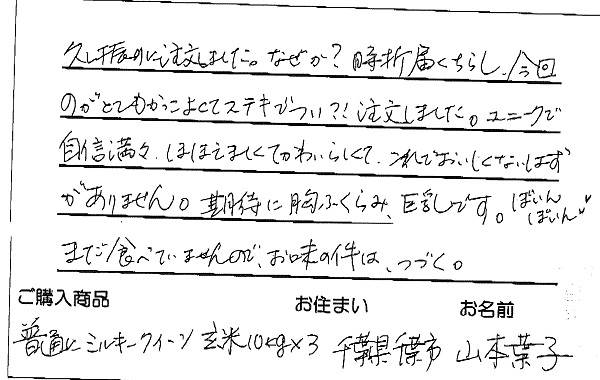 久し振りに注文しました。なぜか？時折届くちらし、今回
のがとてもかっこよくてステキでつい?!注文しました。ユニークで
自信満々、ほほえましくてかわいらしくて、これでおいしくないはず
がありません。期待に胸ふくらみ、巨乳です。ぼいんぼいん♥
まだ食べていませんので、お味の件は、つづく。
ご購入商品 お住まい お名前
普通に ミルキークィーン 玄米10kg×3 千葉県千葉市 山本葉子